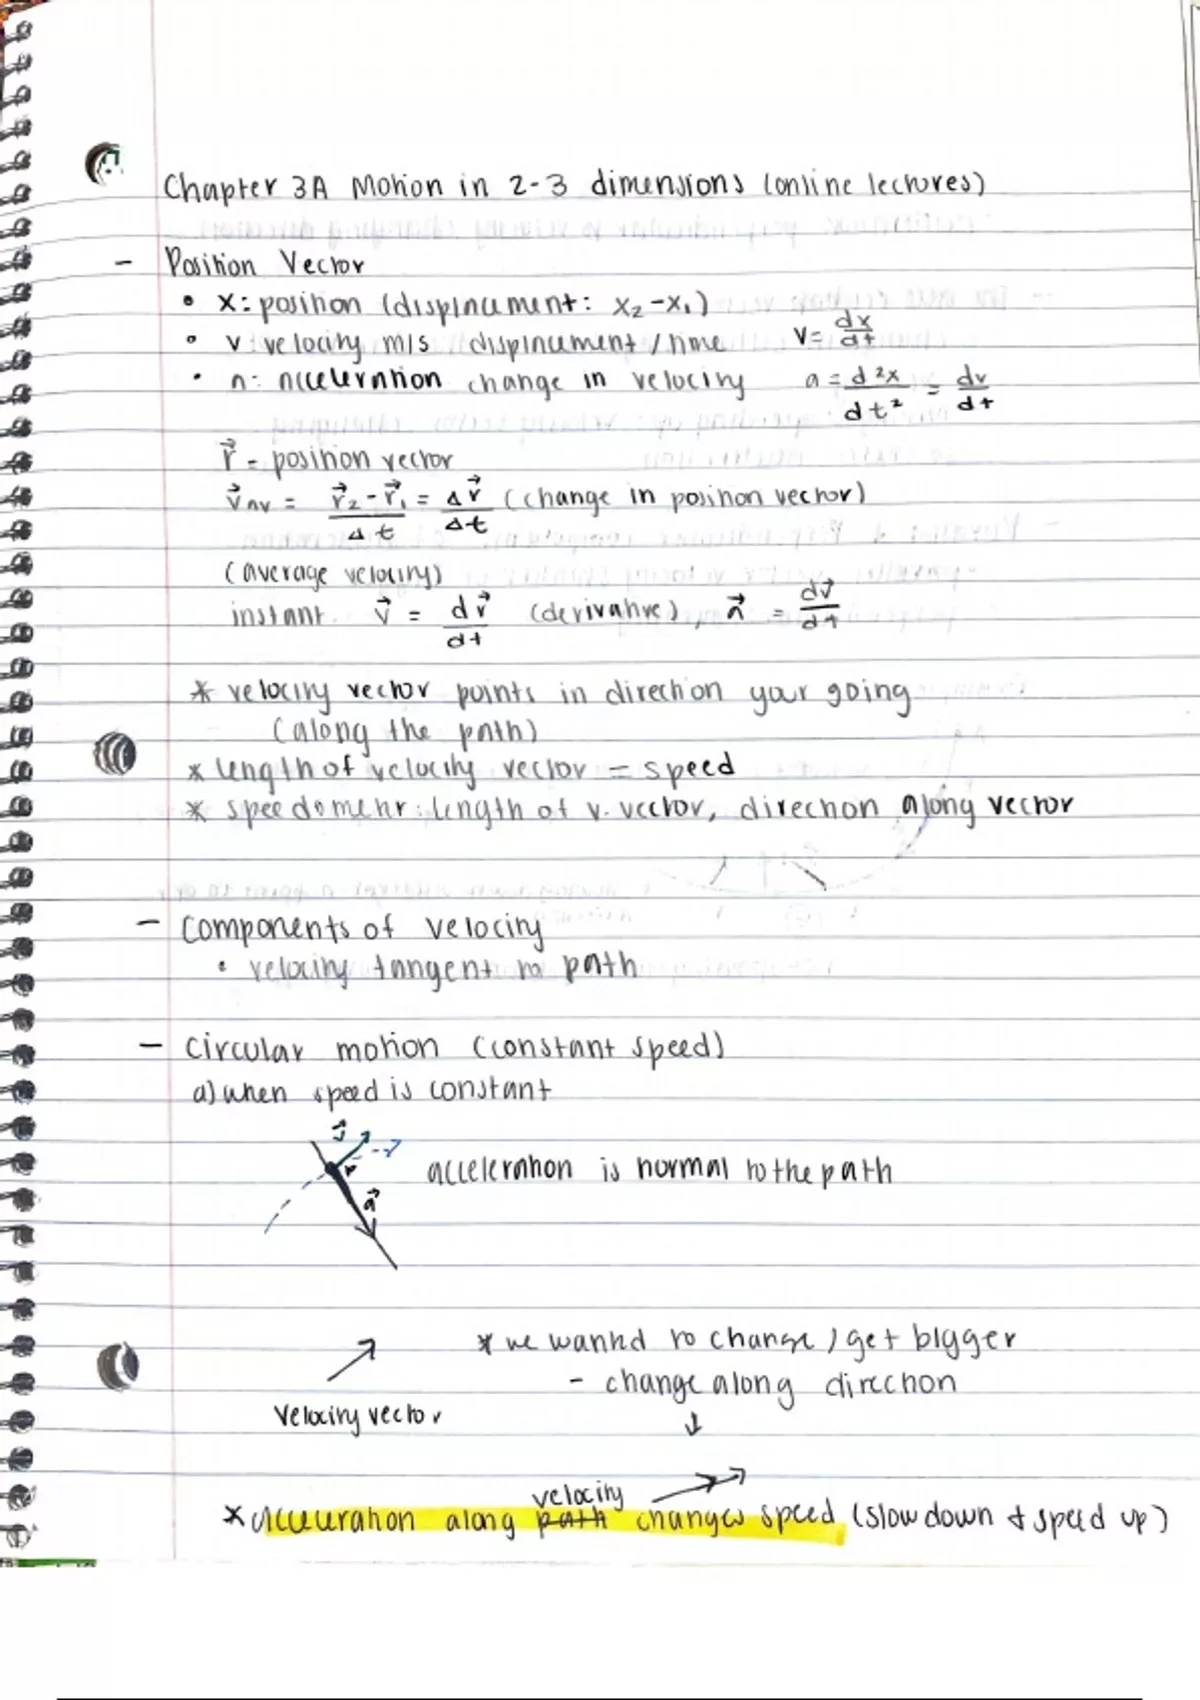 Chapter 3A Motion in 2-3 dimensions (online lectures)
- Position Vector
• x: position (displacement: x₂-x₁)
• v: velocity m/s displacement/time v= dx/dt
• a: acceleration change in velocity a = d²x/dt² = dv/dt
r⃗ = position vector
v⃗av = r⃗₂-r⃗₁/Δt = Δr⃗/Δt (change in position vector)
(average velocity)
instant. v⃗ = dr⃗/dt (derivative), a⃗ = dv⃗/dt
* velocity vector points in direction your going
(along the path)
* length of velocity vector = speed
* speedometer: length of v. vector, direction along vector
- components of velocity
• velocity tangent to path
- circular motion (constant speed)
a) when speed is constant
v⃗
r
a⃗
acceleration is normal to the path
* we wanted to change / get bigger
- change along direction
↓
velocity vector
velocity
* acceleration along path changes speed (slow down & speed up)